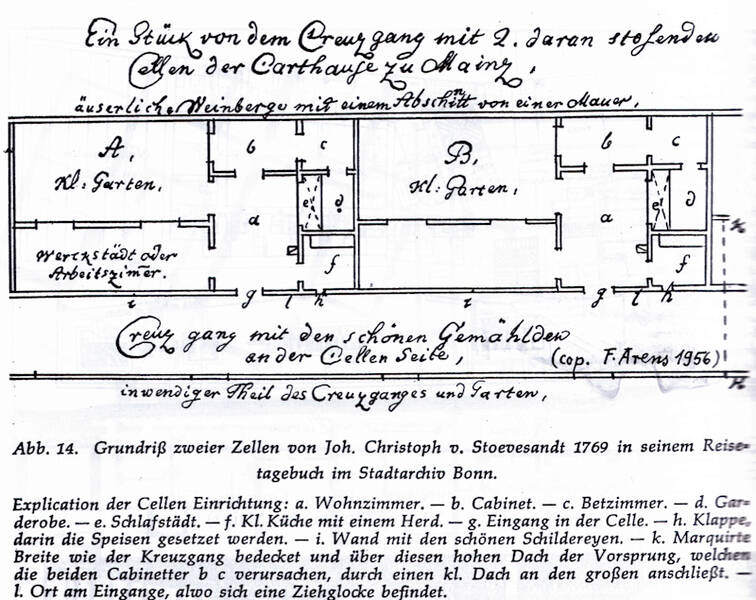 Ein Stück von dem Creuzgang mit 2. daran stosenden
Cellen der Carthause zu Mainz,
äuserliche Weinberge mit einem Abschnitt von einer Mauer,
A, b c B, b c
Kl: Garten, e d Kl: Garten, e d
a a
Werckstädt oder f f
Arbeitszimer. k
i g l h i g l h
Creuz gang mit den schönen Gemählden
an der Cellen Seite, (cop. F. Arens 1956)
k
inwendiger Theil des Creuzganges und Garten,
Abb. 14. Grundriß zweier Zellen von Joh. Christoph v. Stoevesandt 1769 in seinem Reise-
tagebuch im Stadtarchiv Bonn.
Explication der Cellen Einrichtung: a. Wohnzimmer. — b. Cabinet. — c. Betzimmer. — d. Gar-
derobe. — e. Schlafstädt. — f. Kl. Küche mit einem Herd. — g. Eingang in der Celle. — h. Klappe,
darin die Speisen gesetzet werden. — i. Wand mit den schönen Schildereyen. — k. Marquirte
Breite wie der Kreuzgang bedecket und über diesen hohen Dach der Vorsprung, welchen
die beiden Cabinetter b c verursachen, durch einen kl. Dach an den großen anschließt. —
l. Ort am Eingange, alwo sich eine Ziehglocke befindet.